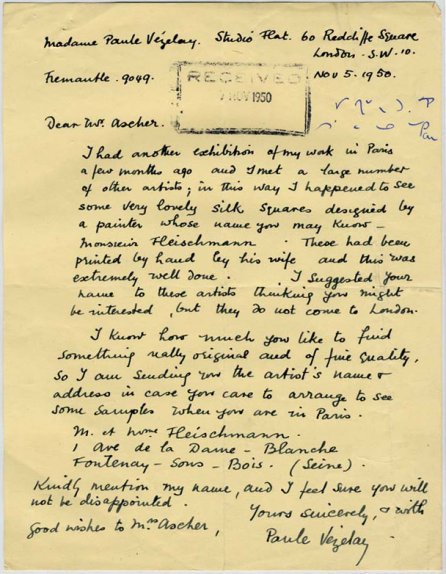 Madame Paule Vézelay. Studio Flat. 60 Redcliffe Square
London. S.W. 10.
Fremantle. 9049.
Nov 5. 1950.
RECEIVED
7 NOV 1950
Dear Mr. Ascher.
I had another exhibition of my work in Paris
a few months ago and I met a large number
of other artists; in this way I happened to see
some very lovely silk squares designed by
a painter whose name you may know –
Monsieur Fleischmann. These had been
printed by hand by his wife and this was
extremely well done. I suggested your
name to these artists thinking you might
be interested, but they do not come to London.
I know how much you like to find
something really original and of fine quality,
so I am sending you the artist's name &
address in case you care to arrange to see
some samples when you are in Paris.
M. et Mme Fleischmann.
1 Ave de la Dame – Blanche
Fontenay – Sous – Bois. (Seine).
Kindly mention my name, and I feel sure you will
not be disappointed.
Yours sincerely, & with
good wishes to Mrs Ascher,
Paule Vézelay.